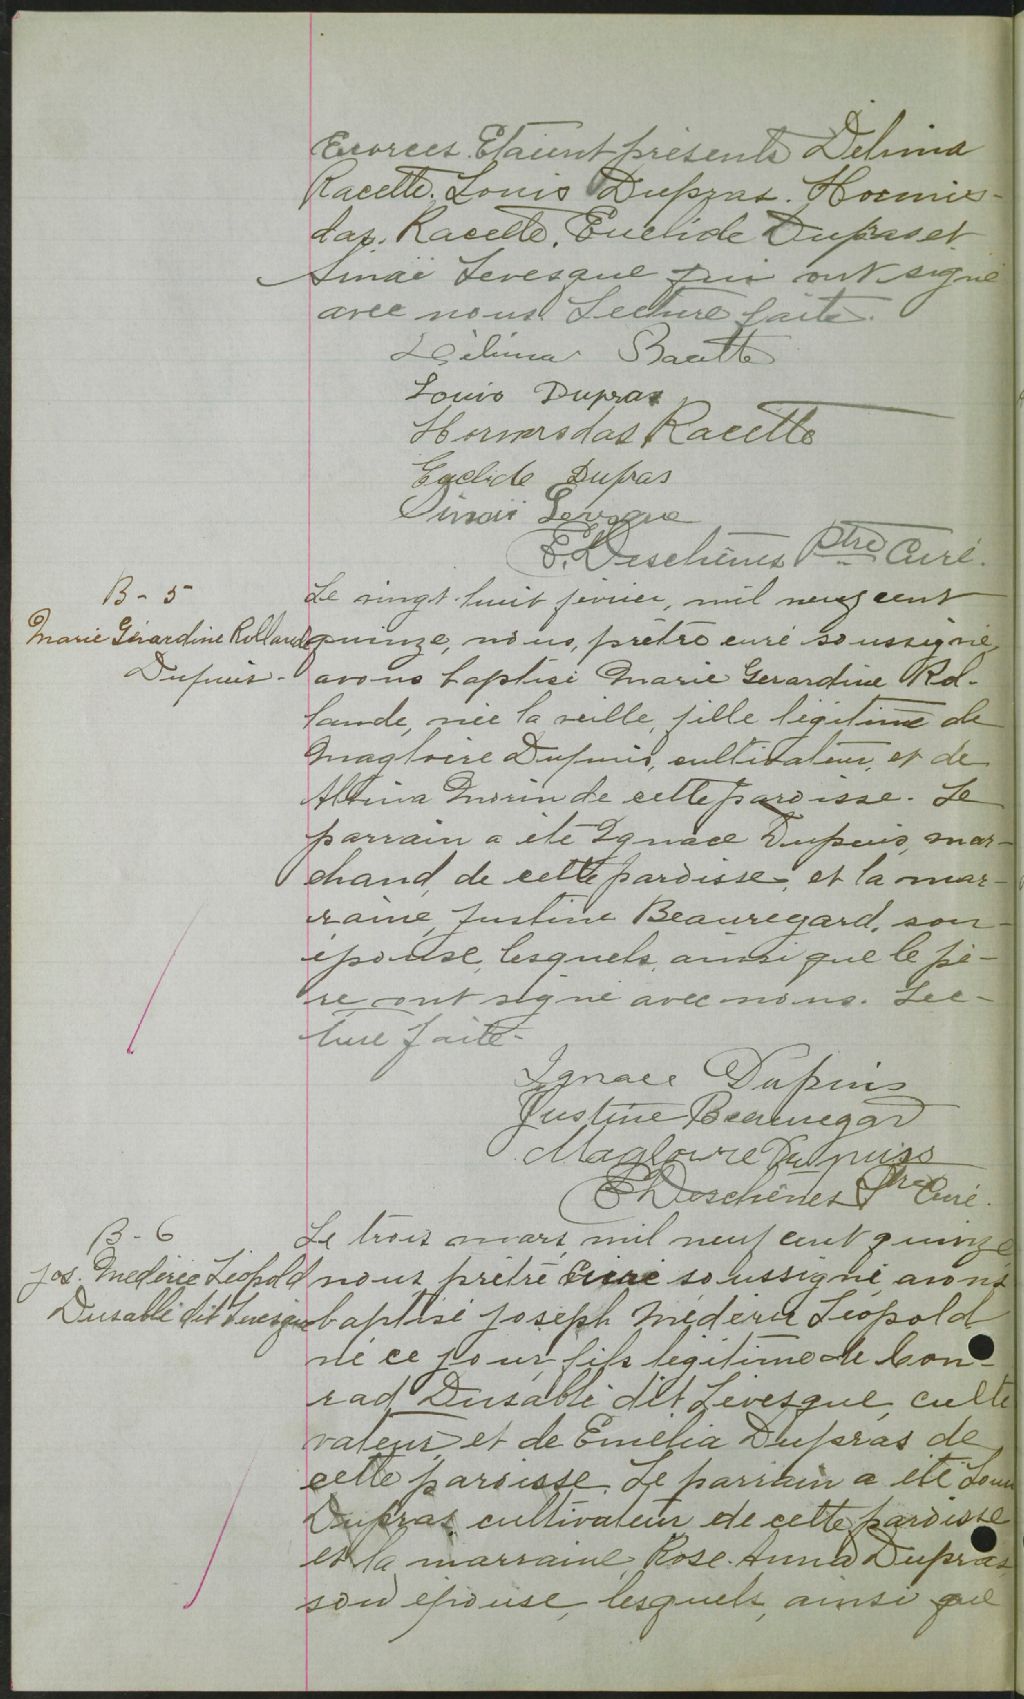 Ecorces. Etaient présents Délima
Racette. Louis Dupras. Hormis-
das. Racette. Euclide Dupras et
Sinaï Levesque qui ont signé
avec nous. Lecture faite.
Délima Racette
Louis Dupras
Hormisdas Racette
Euclide Dupras
Sinaï Levesque
E. Deschênes Ptre Curé.
B - 5
Marie Gérardine Rollande
Dupuis -
Le vingt-huit février, mil neuf cent
quinze, nous, prêtre curé soussigné,
avons baptisé Marie Gerardine Rol-
lande, née la veille, fille légitime de
Magloire Dupuis, cultivateur, et de
Albina Morin de cette paroisse. Le
parrain a été Ignace Dupuis, mar-
chand, de cette paroisse, et la mar-
raine, Justine Beauregard, son
épouse, lesquels, ainsi que le pè-
re ont signé avec nous. Lec-
ture faite -
Ignace Dupuis
Justine Beauregard
Magloire Dupuis
E Deschênes Ptre Curé.
B - 6
Jos. Mederic Léopold
Dusablé dit Levesque
Le trois mars, mil neuf cent quinze
nous, prêtre curé soussigné, avons
baptisé Joseph Médéric Léopold
né ce jour, fils légitime de Con-
rad Dusablé dit Lévesque, culti
vateur, et de Emélia Dupras de
cette paroisse. Le parrain a été Louis
Dupras, cultivateur de cette paroisse
et la marraine, Rose-Anna Dupras,
son épouse, lesquels, ainsi que